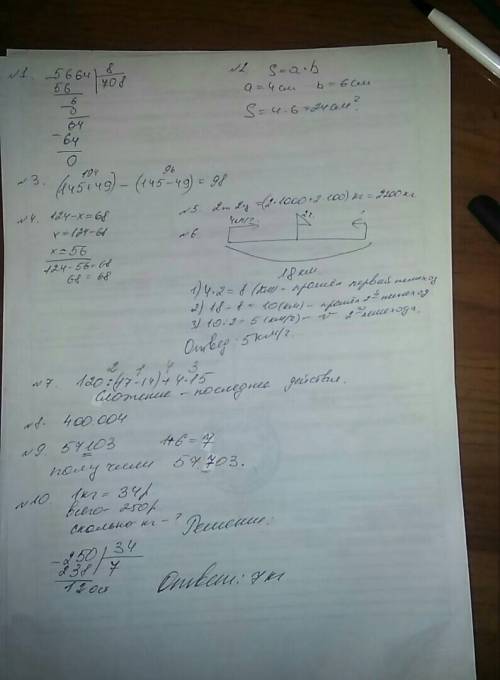 №1. 5664 | 8
56 | 708
6
0
64
64
0
№2. S=a·b
a=4см b=6см
S=4·6=24см²
№3. (145+49) – (145-49)=98
194 96
№4. 124-x=68
x=124-68
x=56
124-56=68
68=68
№5. 2т 2ц=(2·1000+2·100) кг=2200кг
№6. 4км/г 2г
18км
1) 4·2=8 (км) – прошёл первый пешеход
2) 18-8=10(км) – прошёл 2й пешеход
3) 10:2=5(км/г) – V 2го пешехода.
Ответ: 5км/г.
2 1 4 3
№7. 120:(17-14)+4·15
Сложение – последнее действие.
№8. 400.004
№9. 57103 1+6=7
получили 57.703.
№10. 1кг = 34р
всего – 250р
сколько кг – ? Решение:
250 | 34
238 | 7
12 ост
Ответ: 7кг